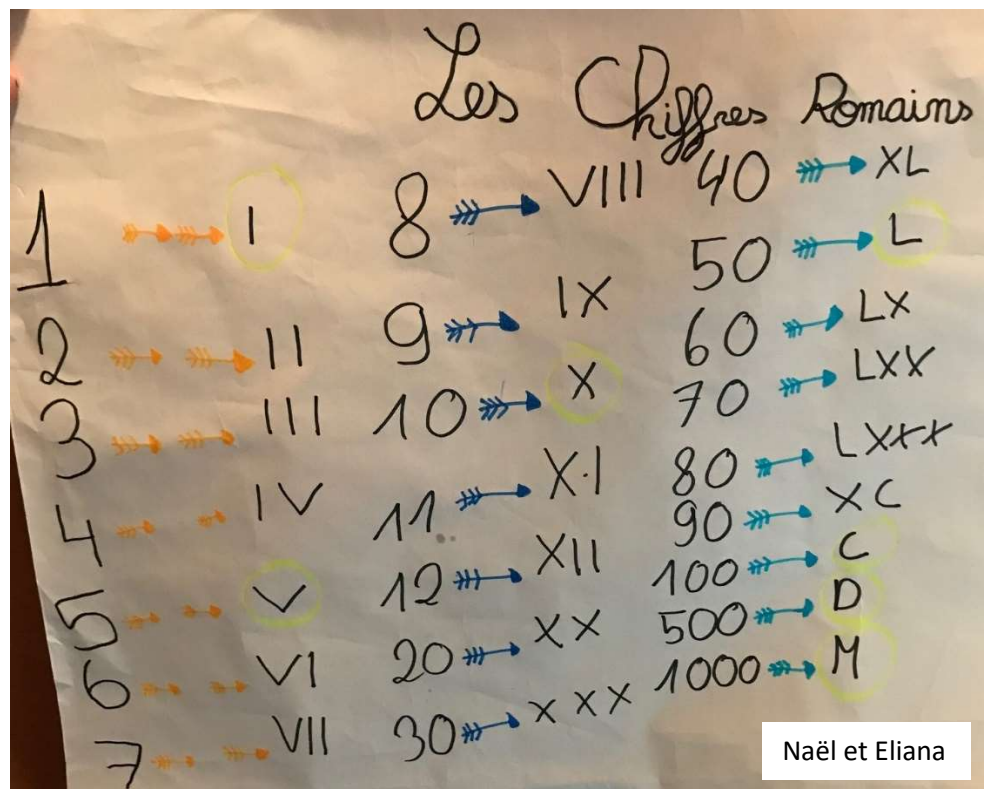 Les Chiffres Romains
1 I
2 II
3 III
4 IV
5 V
6 VI
7 VII
8 VIII
9 IX
10 X
11 X·I
12 XII
20 XX
30 XXX
40 XL
50 L
60 LX
70 LXX
80 LXXX
90 XC
100 C
500 D
1000 M
Naël et Eliana